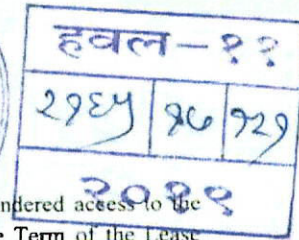 हवल-११
२१६५ १७ १२१
ndered access to the
२०१९
Term of the Lease